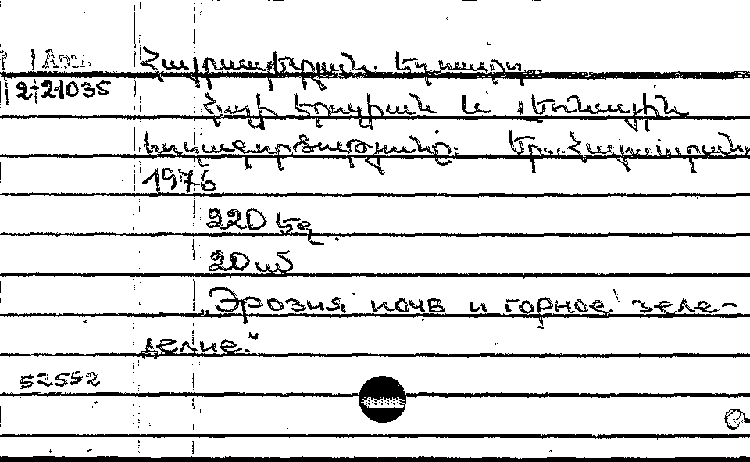 Հայրապետյան Եղսարդ
2-21035
Հողի էրոզիան և լեռնային
երկրագործությունը։ Եր., Հայաստան
1976
220 էջ
20 սմ
„Эрозия почв и горное земле-
делие."
52552